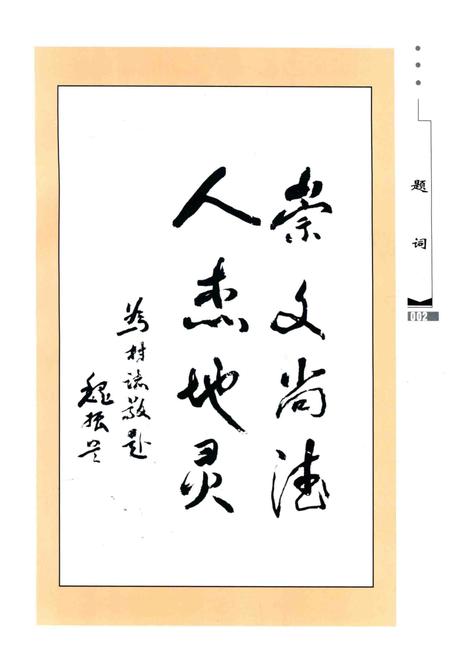 崇文尚德
人杰地灵
为村志敬题
魏振兴
题词
002